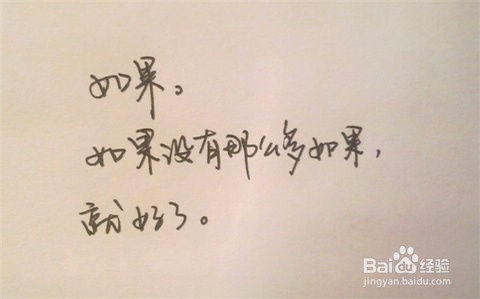 如果。
如果没有那么多如果，
就好了。
Baidu经验
jingyan.baidu.com